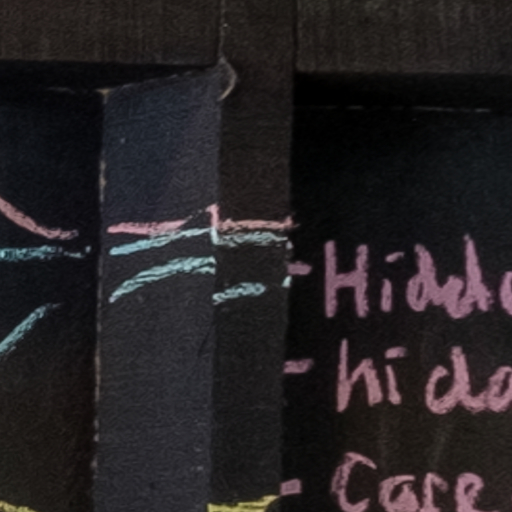 - Hidd
- hidd
- Care